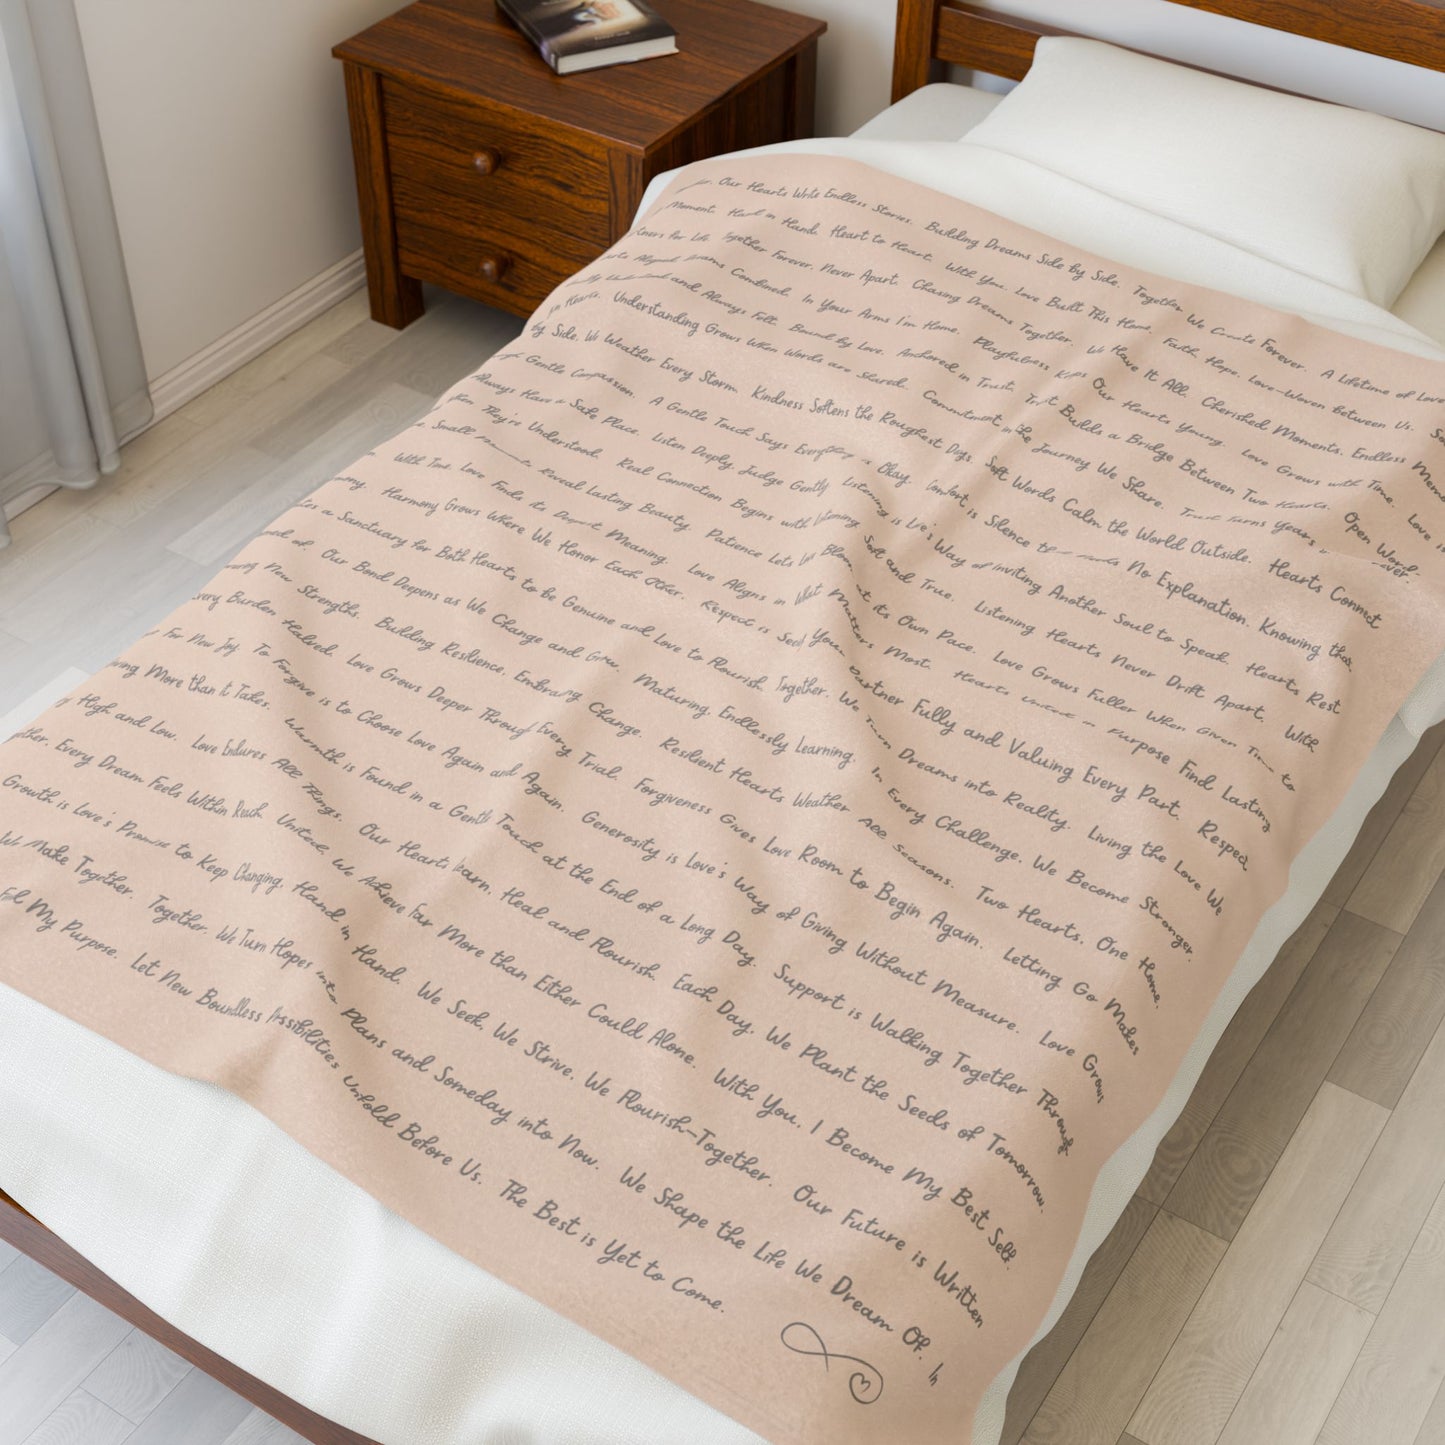 Our Hearts Write Endless Stories. Building Dreams Side by Side. Together We Create Forever. A Lifetime of Love
Moment. Hand in Hand, Heart to Heart. With You, Love Built This Home. Faith, Hope, Love-Woven Between Us. So
for Life. Together Forever, Never Apart. Chasing Dreams Together. We Have It All. Cherished Moments, Endless Memo
Aligned, Dreams Combined. In Your Arms I'm Home. Playfulness Keeps Our Hearts Young. Love Grows with Time. Love is
Understood and Always Felt. Bound by Love, Anchored in Trust. Trust Builds a Bridge Between Two Hearts. Open Word-
in Hearts. Understanding Grows When Words are Shared. Commitment in the Journey We Share. Trust Turns Years
by Side, We Weather Every Storm. Kindness Softens the Roughest Days. Soft Words Calm the World Outside. Hearts Connect
Gentle Compassion. A Gentle Touch Says Everything is Okay. Comfort is Silence that needs No Explanation. Knowing that
Always Have a Safe Place. Listen Deeply, Judge Gently. Listening is Love's Way of Inviting Another Soul to Speak. Hearts Rest
When They're Understood. Real Connection Begins with Listening, Soft and True. Listening Hearts Never Drift Apart. With
Small Moments Reveal Lasting Beauty. Patience Lets Love Bloom at its Own Pace. Love Grows Fuller When Given Time to
With Time, Love Finds its Deepest Meaning. Love Aligns in What Matters Most. Hearts United in Purpose Find Lasting
Harmony Grows Where We Honor Each Other. Respect is Seeing Your Partner Fully and Valuing Every Part. Respect
a Sanctuary for Both Hearts to be Genuine and Love to Flourish. Together, We Turn Dreams into Reality. Living the Love We
of. Our Bond Deepens as We Change and Grow. Maturing, Endlessly Learning. In Every Challenge, We Become Stronger.
New Strengths. Building Resilience, Embracing Change. Resilient Hearts Weather All Seasons. Two Hearts, One Home.
Every Burden Halved. Love Grows Deeper Through Every Trial. Forgiveness Gives Love Room to Begin Again. Letting Go Makes
For New Joy. To Forgive is to Choose Love Again and Again. Generosity is Love's Way of Giving Without Measure. Love Grows
More than it Takes. Warmth is Found in a Gentle Touch at the End of a Long Day. Support is Walking Together Through
High and Low. Love Endures All Things. Our Hearts Learn, Heal and Flourish. Each Day, We Plant the Seeds of Tomorrow.
Every Dream Feels Within Reach. United, We Achieve Far More than Either Could Alone. With You, I Become My Best Self.
Growth is Love's Promise to Keep Changing, Hand in Hand. We Seek, We Strive, We Flourish-Together. Our Future is Written
We Make Together. Together, We Turn Hopes into Plans and Someday into Now. We Shape the Life We Dream Of. In
My Purpose. Let New Boundless Possibilities Unfold Before Us. The Best is Yet to Come.